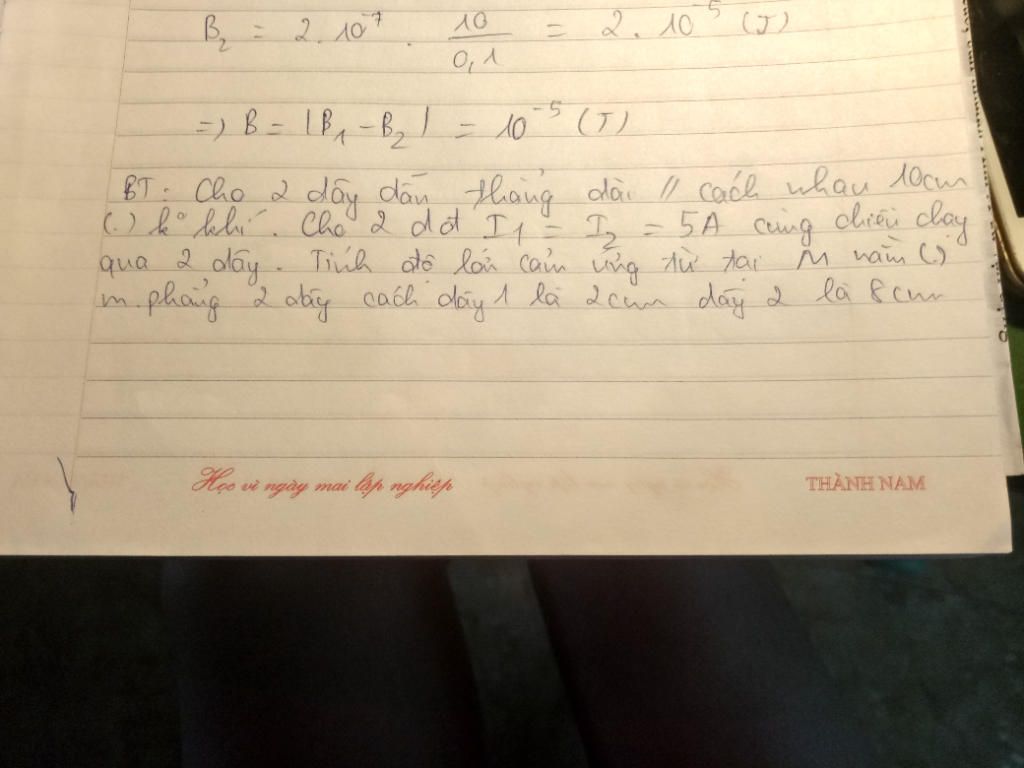 B₂ = 2.10⁻⁷ . 10/0,1 = 2.10⁻⁵ (T)
=> B = |B₁ - B₂| = 10⁻⁵ (T)
BT: Cho 2 dây dẫn thẳng dài // cách nhau 10cm
(.) k² khí. Cho 2 dđ I₁ = I₂ = 5A cùng chiều chạy
qua 2 dây. Tính độ lớn cảm ứng từ tại M nằm (.)
m.phẳng 2 dây cách dây 1 là 2cm dây 2 là 8cm
Học vì ngày mai lập nghiệp
THÀNH NAM